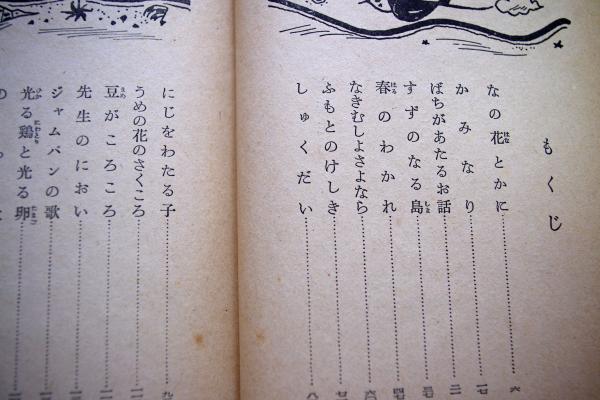 もくじ
なの花とかに
かみなり
ばちがあたるお話
すずのなる島
春のわかれ
なきむしよさよなら
ふもとのけしき
しゅくだい
にじをわたる子
うめの花のさくころ
豆がころころ
先生のにおい
ジャムパンの歌
光る鶏と光る卵